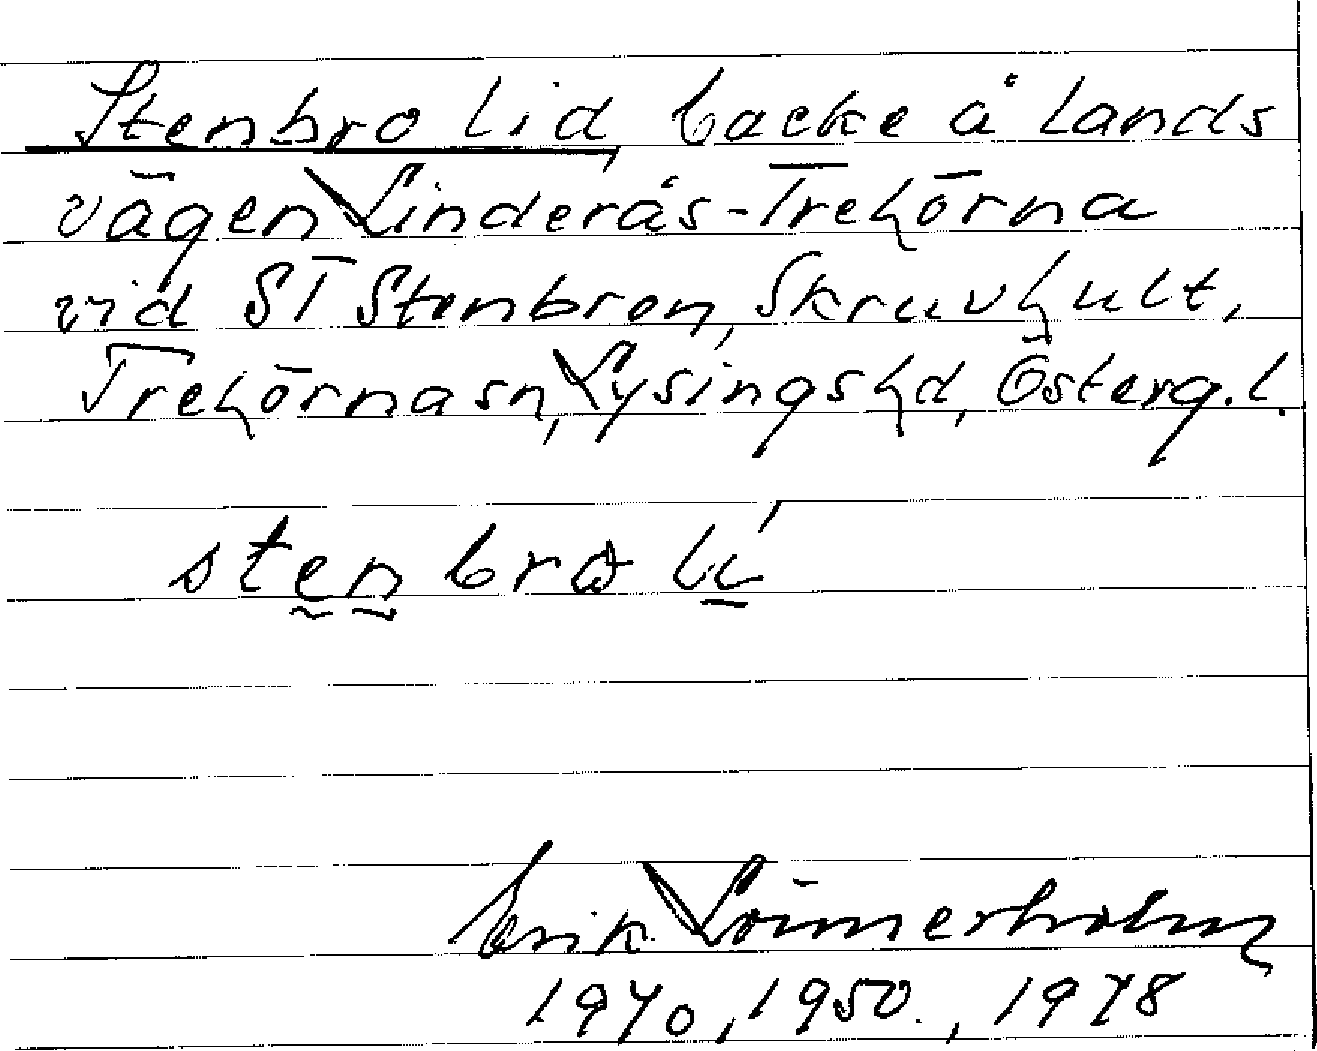 Stenbro lid, backe å lands
vägen Linderås-Trehörna
vid ST Stenbron, Skruvhult,
Trehörna sn, Lysings hd, Österg. l.
sten bro li'
Erik Lönnerholm
1940, 1950., 1978